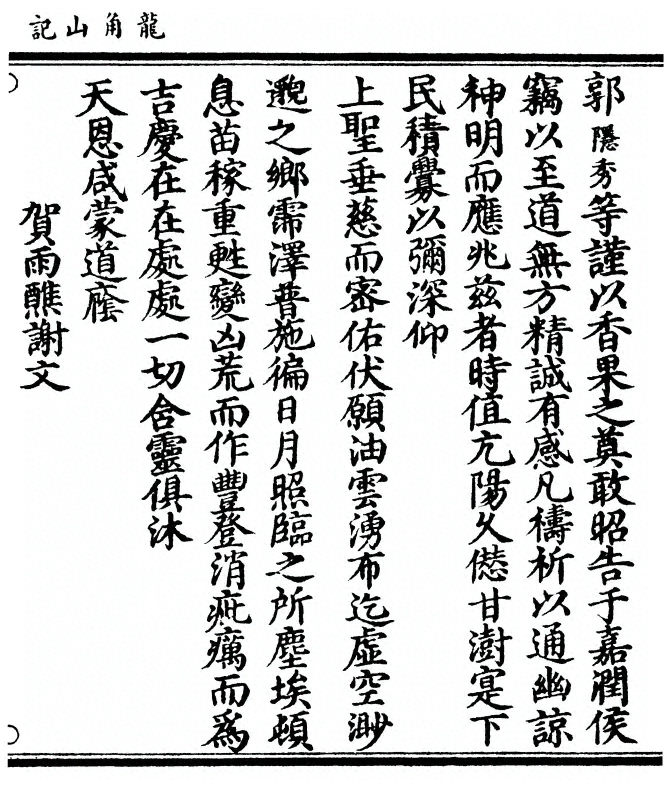 龍角山記
郭隱秀等謹以香果之奠敢昭告于嘉潤侯
竊以至道無方精誠有感凡禱祈以通幽諒
神明而應兆茲者時值亢陽久愆甘澍寔下
民積釁以彌深仰
上聖垂慈而密佑伏願油雲湧布迄虛空渺
邈之鄉霈澤普施徧日月照臨之所塵埃頓
息苗稼重甦變凶荒而作豐登消疵癘而爲
吉慶在在處處一切含靈俱沐
天恩咸蒙道廕
賀雨醮謝文